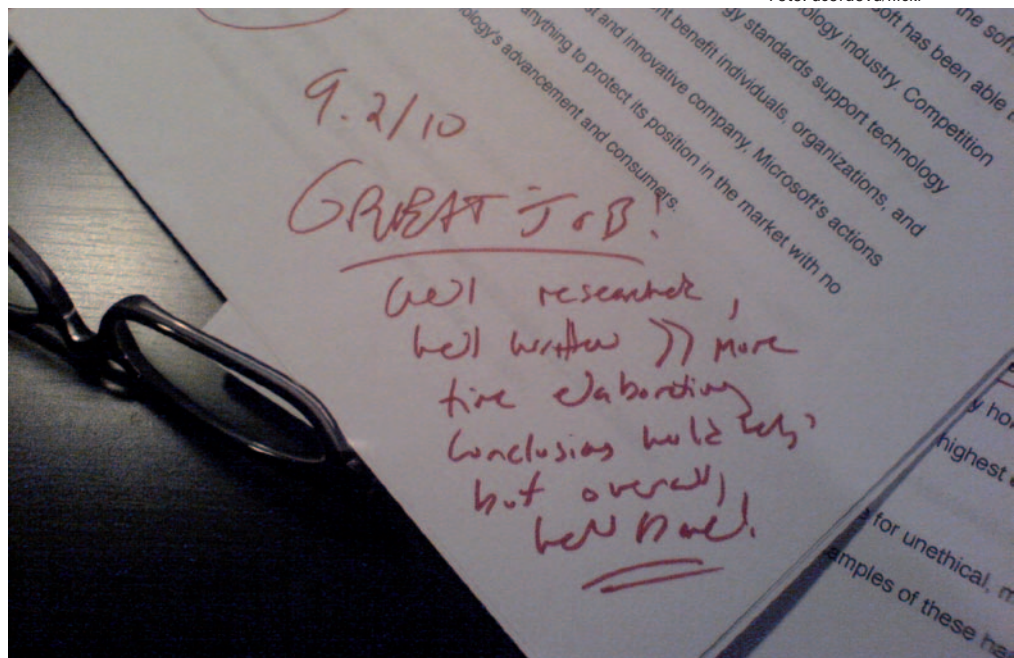 9.2/10
GREAT JOB!
Well researched,
well written >> more
time elaborating
conclusions would help,
but overall,
well Done!
the soft
soft has been able
ology industry. Competition
gy standards support technology
nt benefit individuals, organizations, and
st and innovative company. Microsoft's actions
anything to protect its position in the market with no
ology's advancement and consumers.
y
highest
for unethical,
amples of these